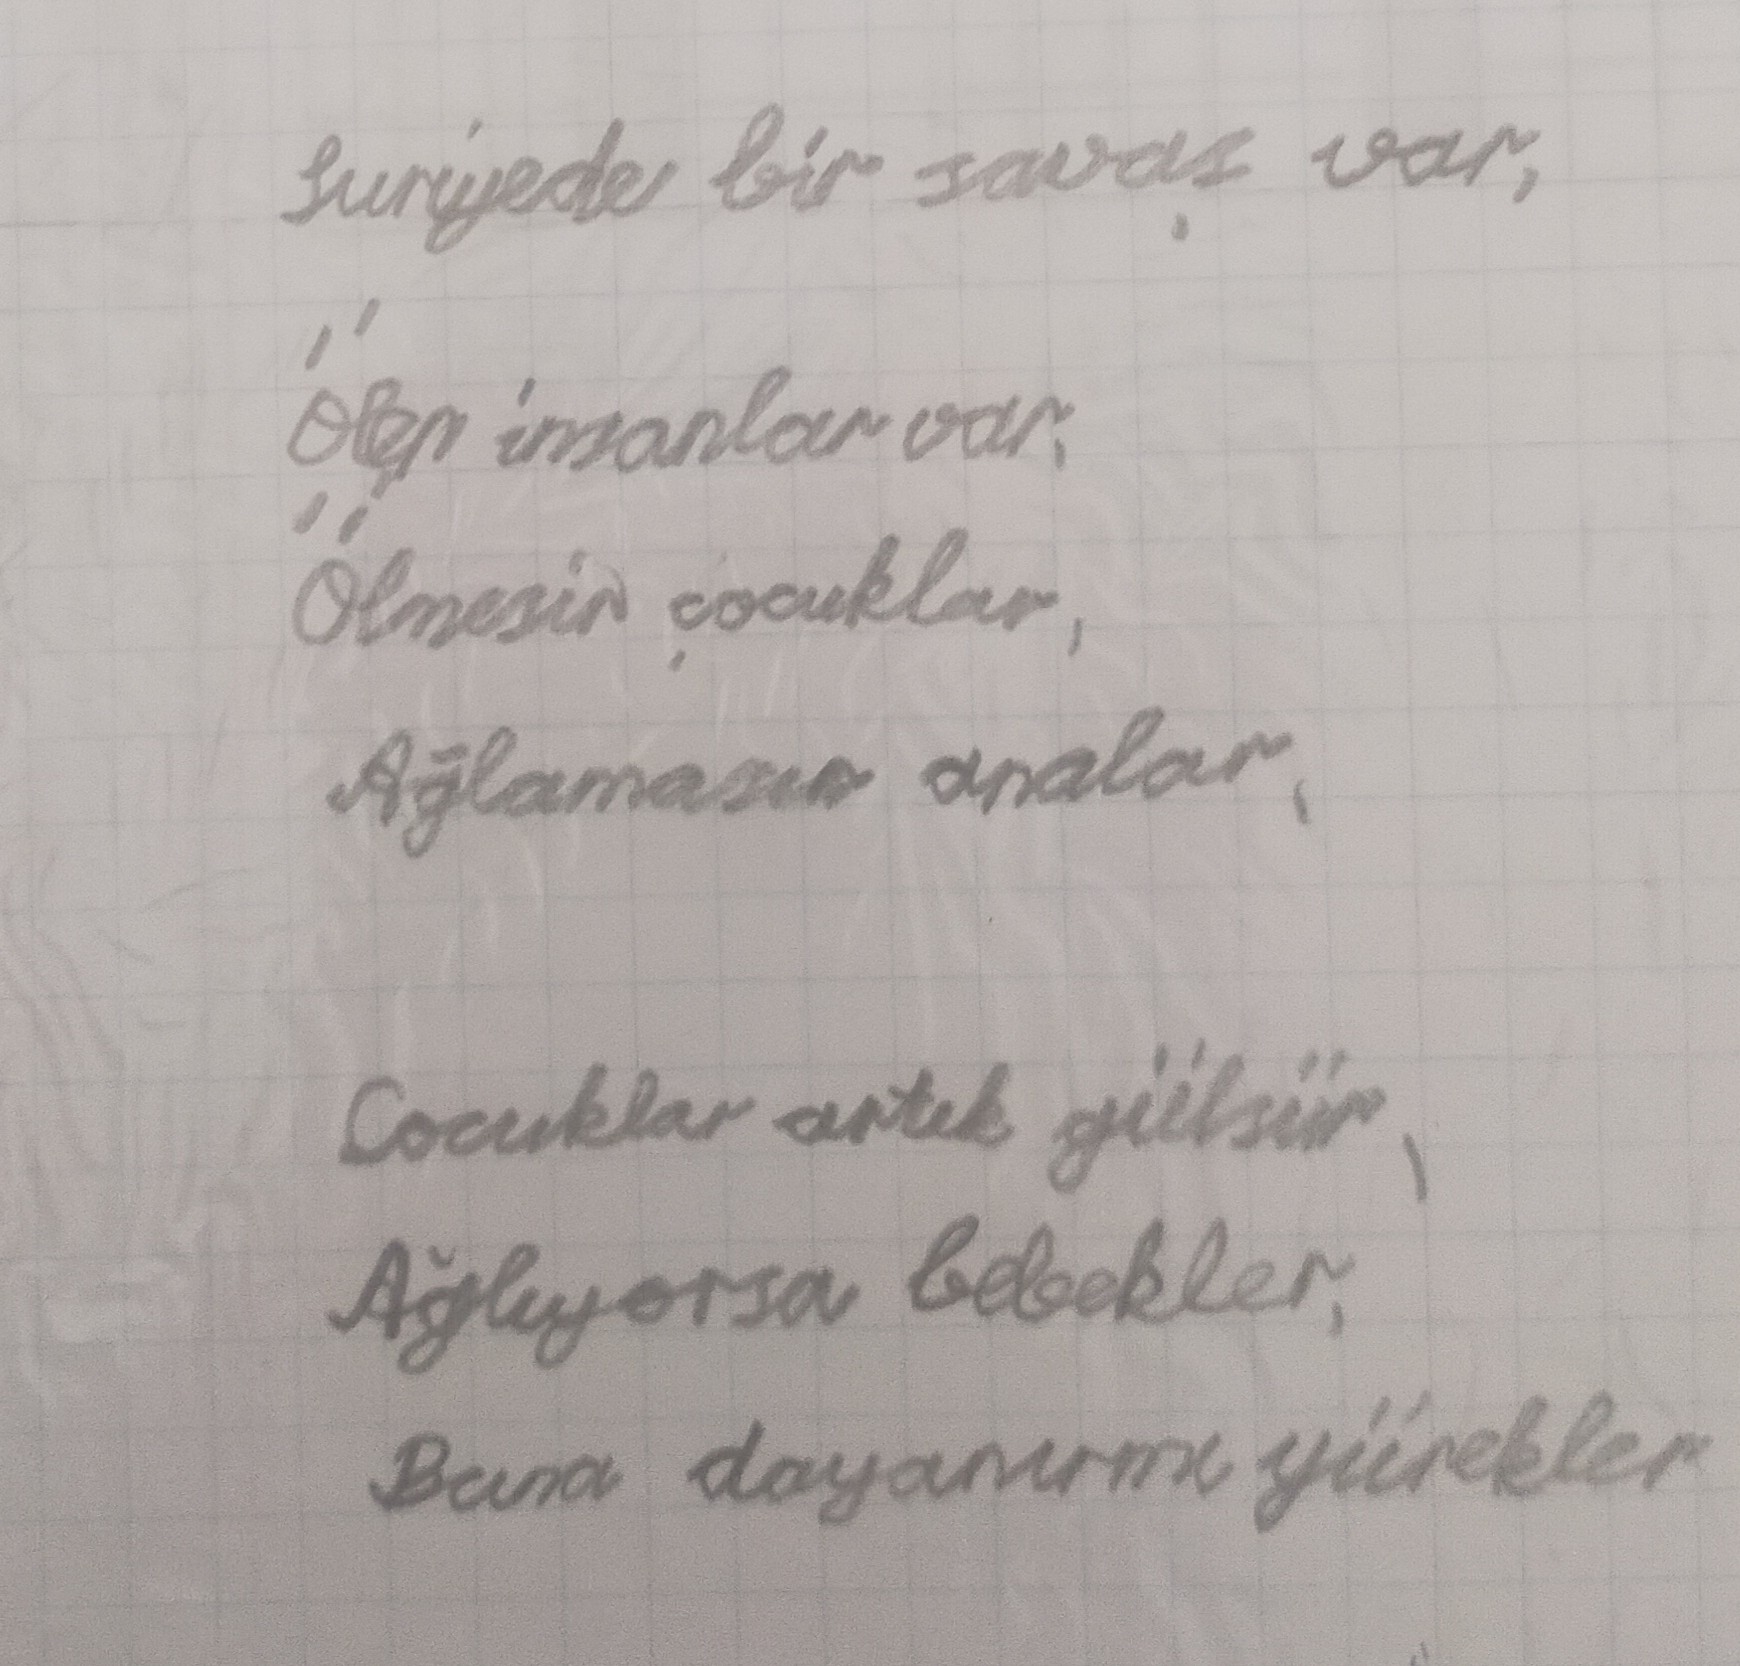 Suriyede bir savaş var,
Ölen insanlar var,
Ölmesin çocuklar,
Ağlamasın analar,
Cocuklar artık gülsün,
Ağlıyorsa bebekler,
Buna dayanırmı yürekler